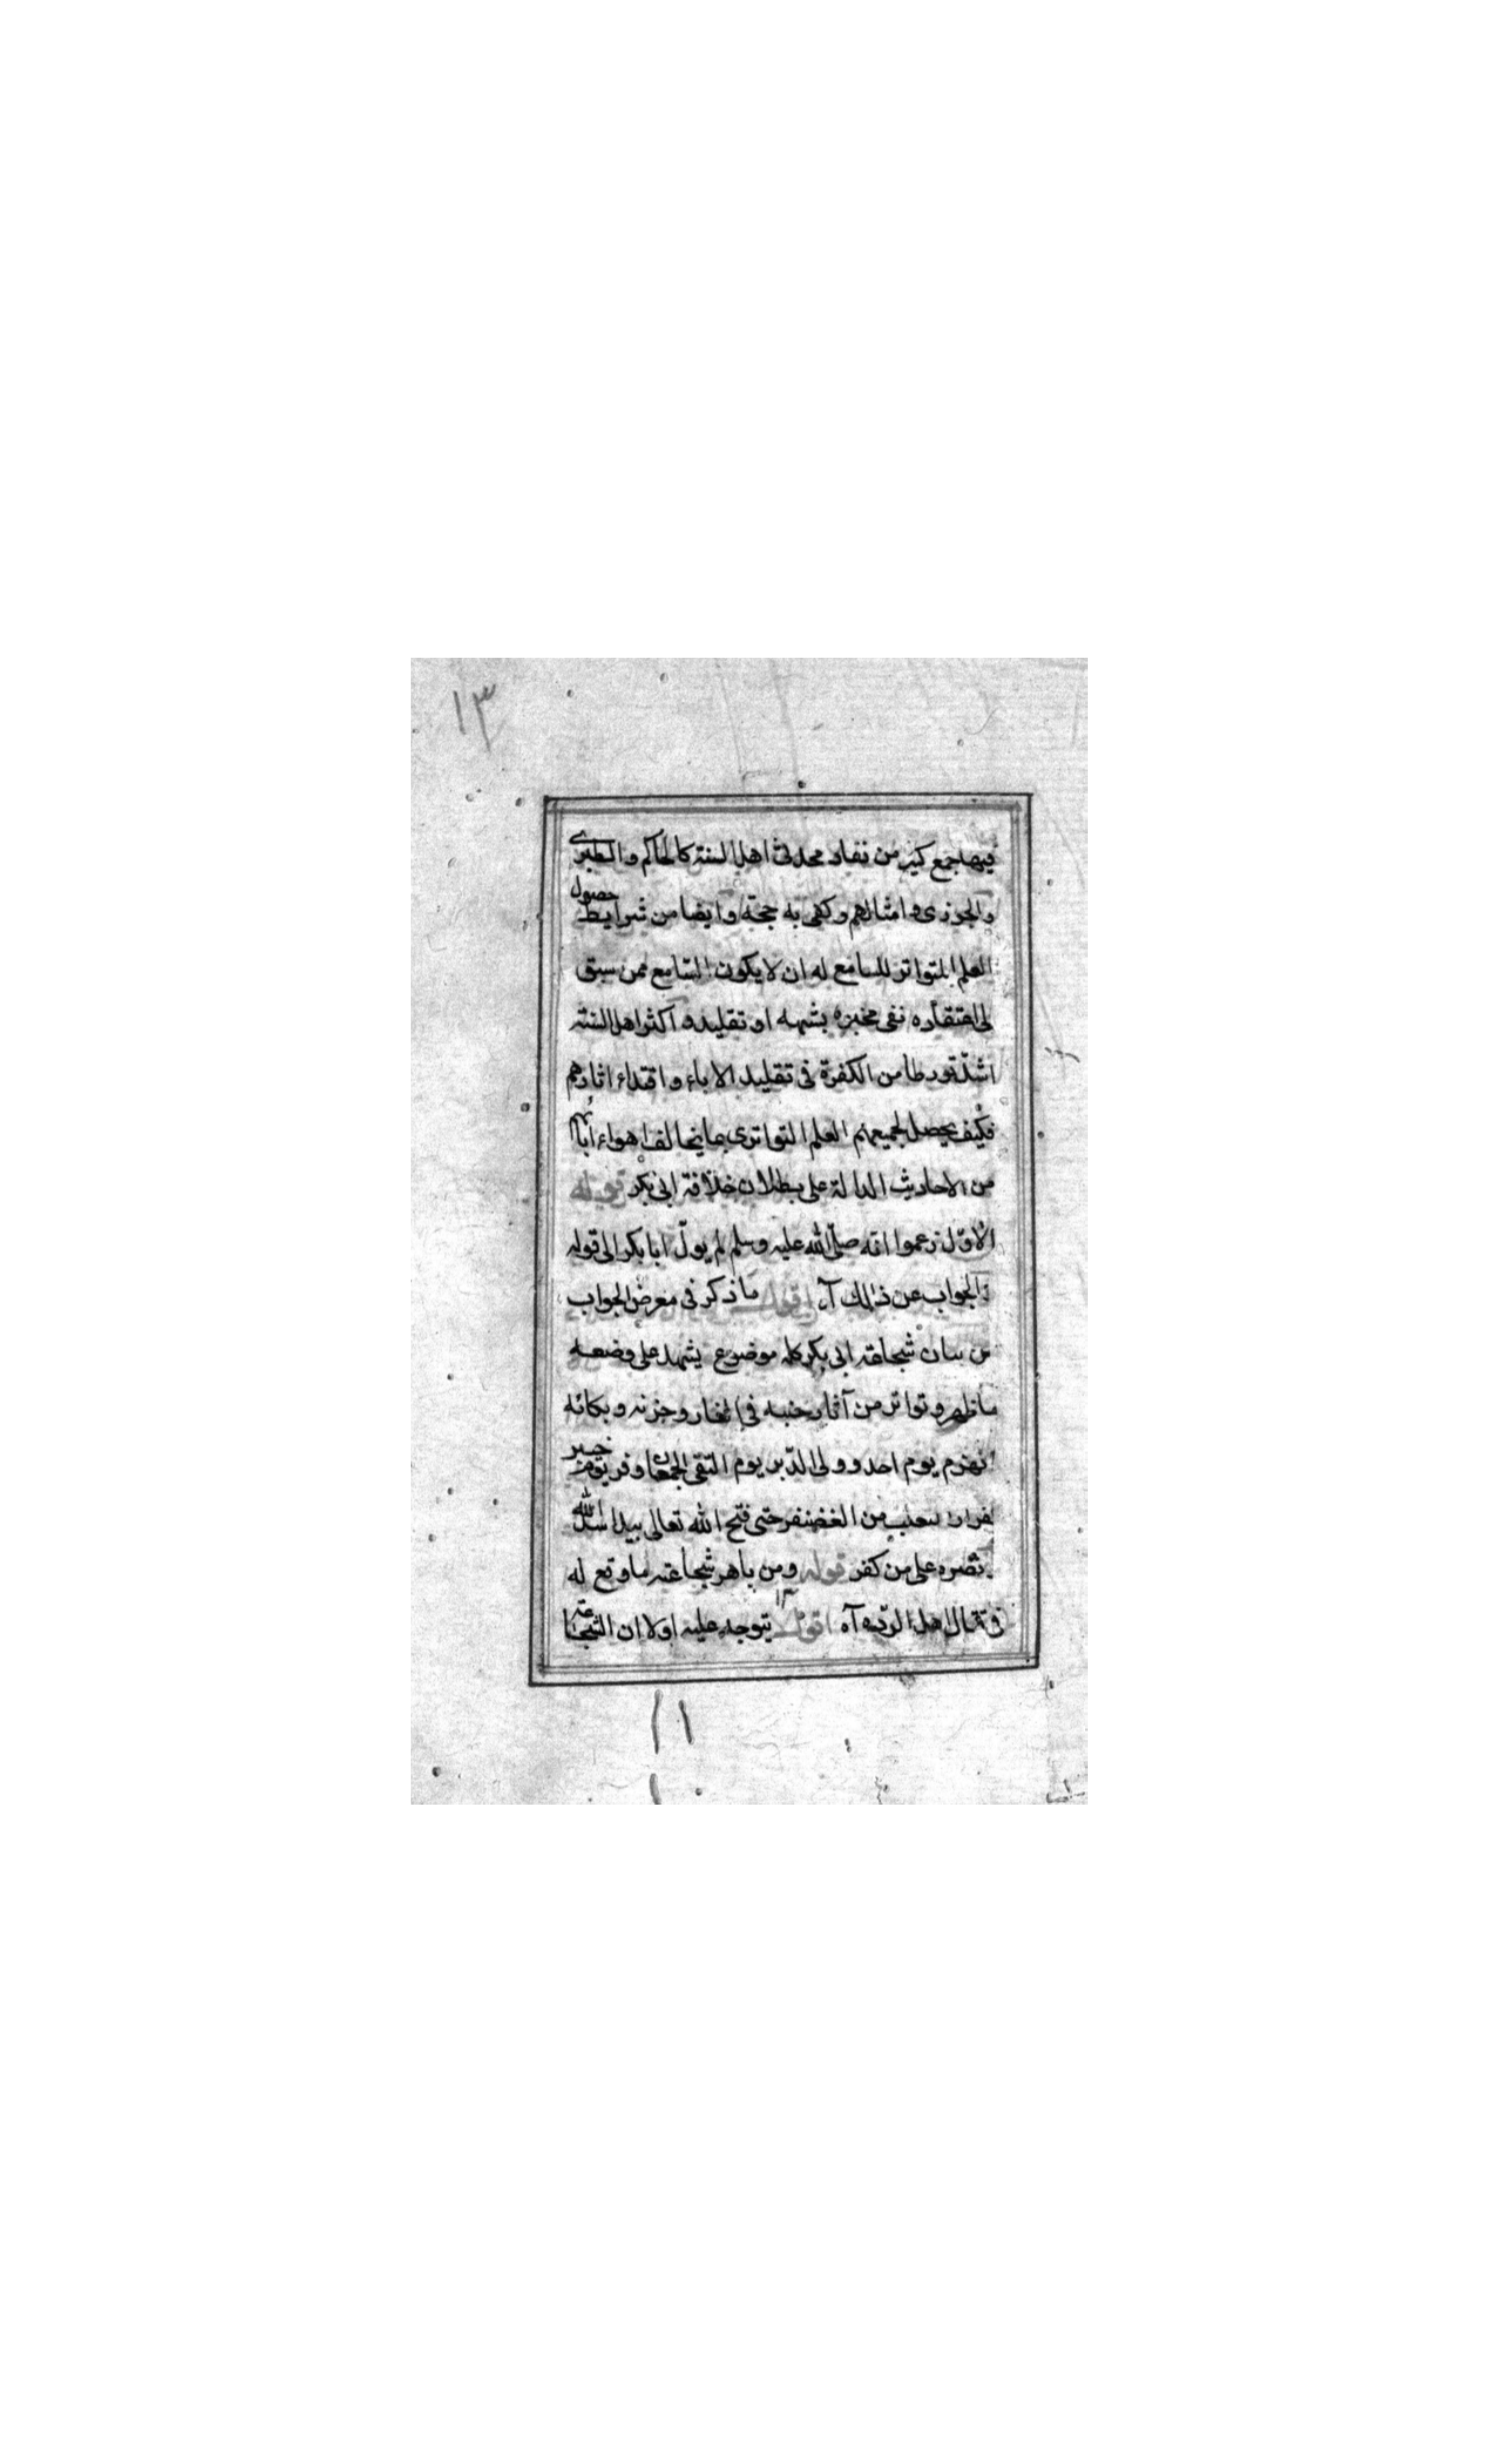 ١٣
فيها جمع كثير من نقاد محدثى اهل السنة كالحاكم والطبرى
والجزرى وامثالهم وكفى به حجة وايضا من شرايط حصول
العلم بالمتواتر للسامع له ان لا يكون السامع ممن سبق
الى اعتقاده نفى مخبره بشبهه او تقليد و اكثر اهل السنة
اشد تورطا من الكفرة فى تقليد الاباء و اقتداء اثارهم
فكيف يحصل لجميعهم العلم التواترى بما يخالف اهواء ابائهم
من الاحاديث الدالة على بطلان خلافة ابى بكر قوله
الاول زعموا انه صلى الله عليه وسلم لم يول ابا بكر الى قوله
والجواب عن ذلك آه اقول ما ذكر فى معرض الجواب
من بيان شجاعة ابى بكر كله موضوع يشهد على وضعه
ما ظهر و تواتر من آثار جبنه فى الغار وحزنه و بكائه
انهزم يوم احد وولى الدبر يوم التقى الجمعان وفر يوم خيبر
فرار الثعلب من الغضنفر حتى فتح الله تعالى بيد اسد الله
نصره على من كفر قوله ومن باهر شجاعته ما وقع له
فى قتال اهل الردة آه اقول يتوجه عليه اولا ان الشجاعة
١١